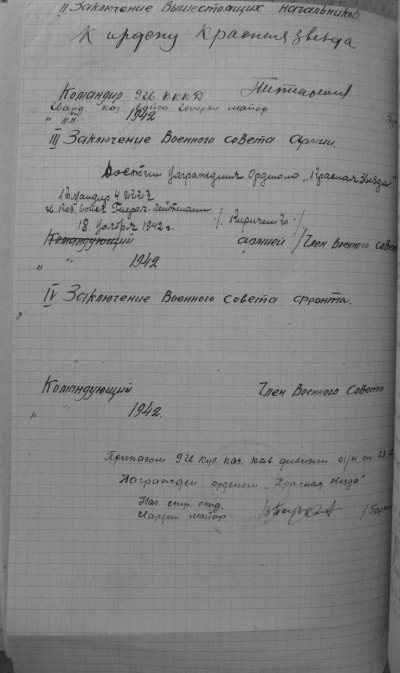 II Заключение Вышестоящих начальников.
К ордену Красная звезда
Командир 9 Гв. К.К.К.Д
Гвард. каз. войск Генерал майор
" " 1942
III Заключение Военного совета Армии.
Достоин Награждения Орденом „Красная звезда"
Командир 4
каз. войск Генерал-Лейтенант /Кириченко/
18. ноября 1942 г.
Командующий армией /Член Военного совета
" " 1942
IV Заключение Военного совета фронта.
Командующий Член Военного Совета
" " 1942.
Приказом 9 Гв. Куб. каз. кав. дивизии от
Награжден орденом „Красная звезда"
Нач. стр. отд.
Гвардии майор